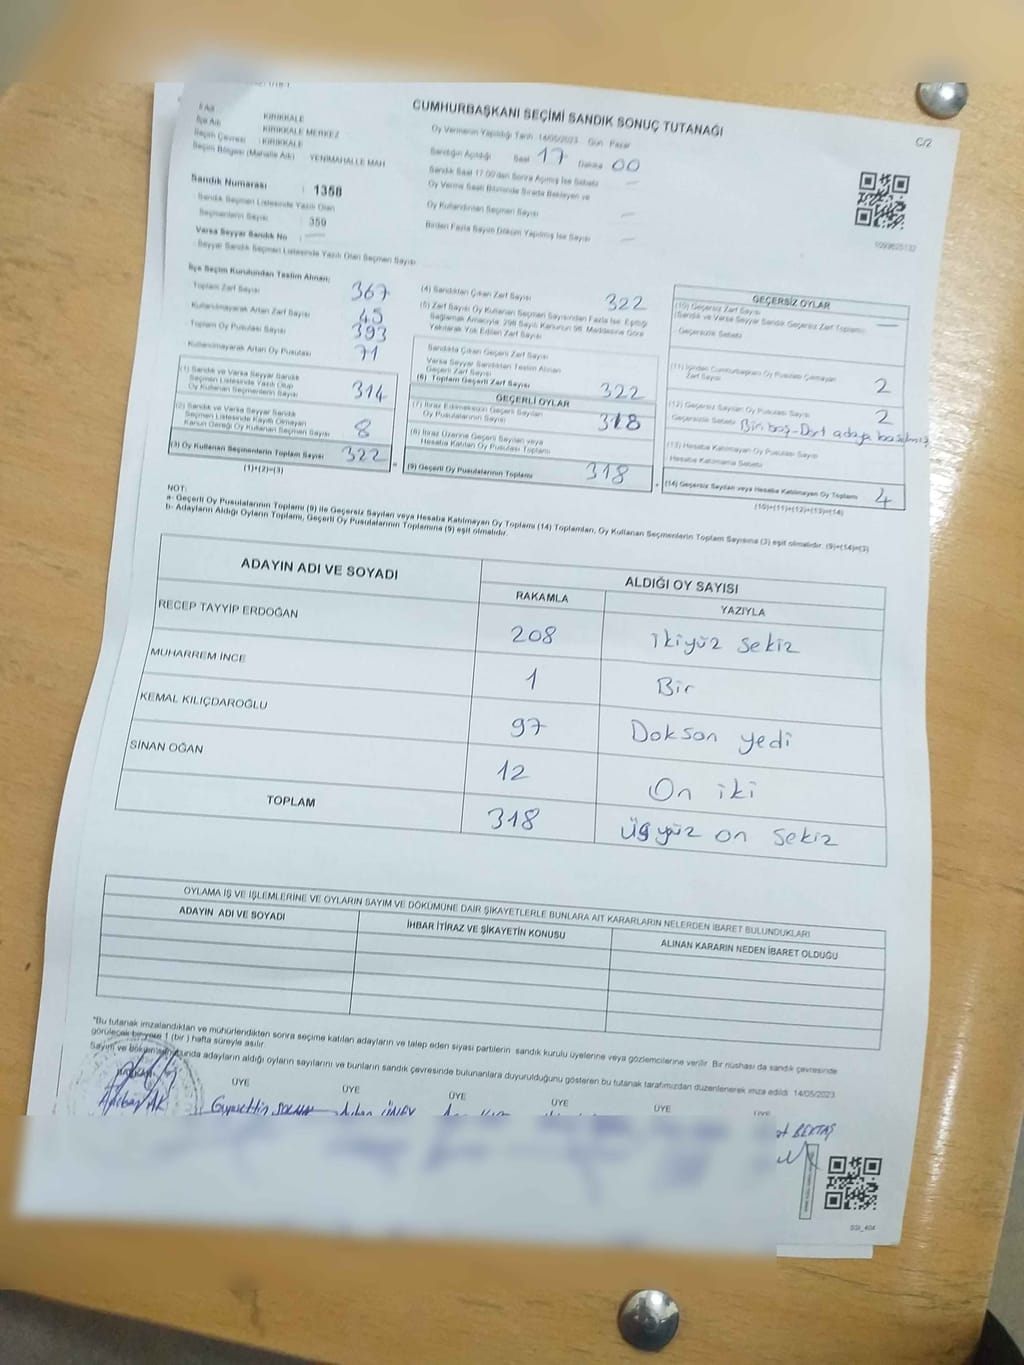 CUMHURBAŞKANI SEÇİMİ SANDIK SONUÇ TUTANAĞI
C/2
İlçe Adı
KIRIKKALE
KIRIKKALE MERKEZ
Seçim Çevresi : KIRIKKALE
Seçim Bölgesi (Mahalle Adı) YENİMAHALLE MAH
Sandık Numarası : 1358
Sandık Seçmen Listesinde Yazılı Olan
Seçmenlerin Sayısı : 350
Varsa Seyyar Sandık No : —
Seyyar Sandık Seçmen Listesinde Yazılı Olan Seçmen Sayısı
Oy Vermenin Yapıldığı Tarih : 14/05/2023 Gün : Pazar
Sandığın Açıldığı Saat 17 Dakika 00
Sandık Saat 17.00'dan Sonra Açılmış İse Sebebi —
Oy Verme Saati Bitiminde Sırada Bekleyen ve
Oy Kullandırılan Seçmen Sayısı —
Birden Fazla Sayım Döküm Yapılmış İse Sayısı —
1099625132
İlçe Seçim Kurulundan Teslim Alınan;
Toplam Zarf Sayısı 367
Kullanılmayarak Artan Zarf Sayısı 45
Toplam Oy Pusulası Sayısı 393
Kullanılmayarak Artan Oy Pusulası 71
(1) Sandık ve Varsa Seyyar Sandık
Seçmen Listesinde Yazılı Olup
Oy Kullanan Seçmenlerin Sayısı 314
(2) Sandık ve Varsa Seyyar Sandık
Seçmen Listesinde Kayıtlı Olmayan
Kanun Gereği Oy Kullanan Seçmen Sayısı 8
(3) Oy Kullanan Seçmenlerin Toplam Sayısı 322
(1)+(2)=(3)
(4) Sandıktan Çıkan Zarf Sayısı 322
(5) Zarf Sayısı Oy Kullanan Seçmen Sayısından Fazla İse, Eşitliği
Sağlamak Amacıyla, 298 Sayılı Kanunun 98. Maddesine Göre
Yakılarak Yok Edilen Zarf Sayısı
Sandıkta Çıkan Geçerli Zarf Sayısı
Varsa Seyyar Sandıktan Teslim Alınan
Geçerli Zarf Sayısı
(6) Toplam Geçerli Zarf Sayısı 322
GEÇERLİ OYLAR
(7) İtiraz Edilmeksizin Geçerli Sayılan
Oy Pusulalarının Sayısı 318
(8) İtiraz Üzerine Geçerli Sayılan veya
Hesaba Katılan Oy Pusulası Toplamı
(9) Geçerli Oy Pusulalarının Toplamı 318
GEÇERSİZ OYLAR
(10) Geçersiz Zarf Sayısı
(Sandık ve Varsa Seyyar Sandık Geçersiz Zarf Toplamı) —
Geçersizlik Sebebi
(11) İçinden Cumhurbaşkanı Oy Pusulası Çıkmayan
Zarf Sayısı 2
(12) Geçersiz Sayılan Oy Pusulası Sayısı 2
Geçersizlik Sebebi Biri boş - Dört adaya basılmış
(13) Hesaba Katılmayan Oy Pusulası Sayısı
Hesaba Katılmama Sebebi
(14) Geçersiz Sayılan veya Hesaba Katılmayan Oy Toplamı 4
(10)+(11)+(12)+(13)=(14)
NOT:
a- Geçerli Oy Pusulalarının Toplamı (9) ile Geçersiz Sayılan veya Hesaba Katılmayan Oy Toplamı (14) Toplamları, Oy Kullanan Seçmenlerin Toplam Sayısına (3) eşit olmalıdır. (9)+(14)=(3)
b- Adayların Aldığı Oyların Toplamı, Geçerli Oy Pusulalarının Toplamına (9) eşit olmalıdır.
ADAYIN ADI VE SOYADI
ALDIĞI OY SAYISI
RAKAMLA YAZIYLA
RECEP TAYYİP ERDOĞAN 208 ikiyüz sekiz
MUHARREM İNCE 1 Bir
KEMAL KILIÇDAROĞLU 97 Doksan yedi
SİNAN OĞAN 12 On iki
TOPLAM 318 üçyüz on sekiz
OYLAMA İŞ VE İŞLEMLERİNE VE OYLARIN SAYIM VE DÖKÜMÜNE DAİR ŞİKAYETLERLE BUNLARA AİT KARARLARIN NELERDEN İBARET BULUNDUKLARI
ADAYIN ADI VE SOYADI İHBAR İTİRAZ VE ŞİKAYETİN KONUSU ALINAN KARARIN NEDEN İBARET OLDUĞU
"Bu tutanak imzalandıktan ve mühürlendikten sonra seçime katılan adayların ve talep eden siyasi partilerin sandık kurulu üyelerine veya gözlemcilerine verilir. Bir nüshası da sandık çevresinde
görülecek bir yere 1 (bir) hafta süreyle asılır.
Sayım ve dökümü sonunda adayların aldığı oyların sayılarını ve bunların sandık çevresinde bulunanlara duyurulduğunu gösteren bu tutanak tarafımızdan düzenlenerek imza edildi. 14/05/2023
BAŞKAN ÜYE ÜYE ÜYE ÜYE ÜYE ÜYE
BEKTAŞ